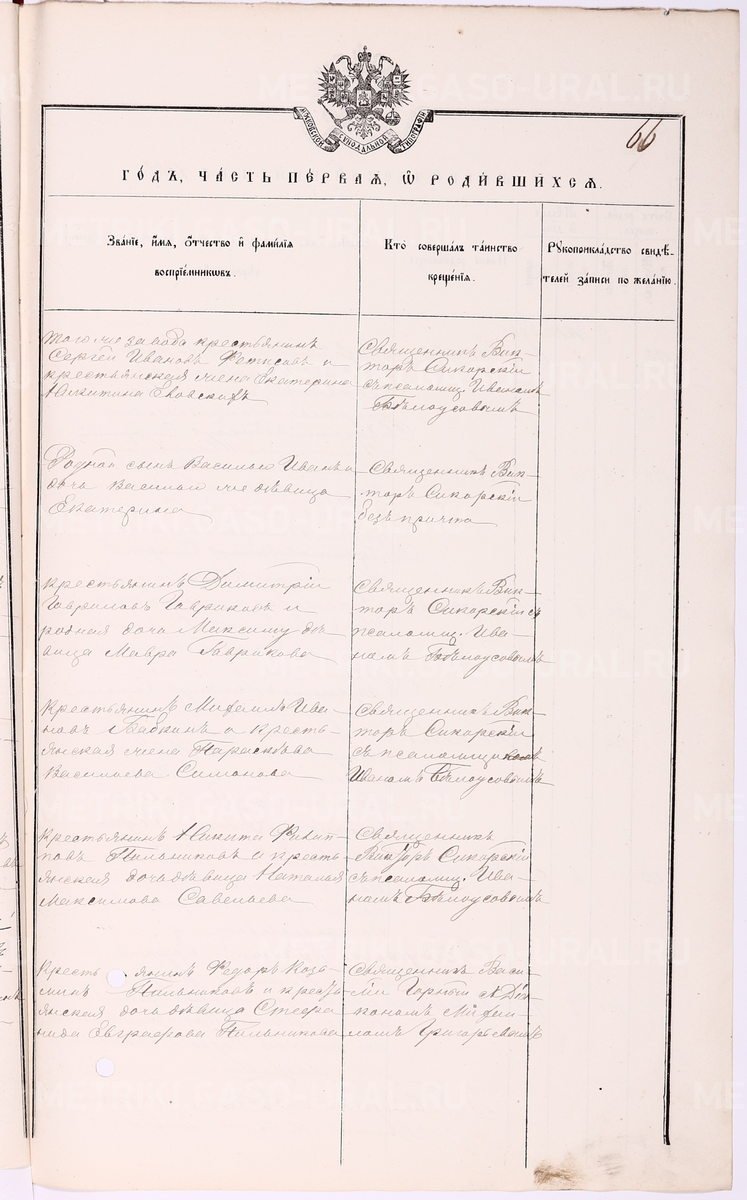 МОСКОВСКОЙ СѴНОДАЛЬНОЙ ТИПОГРАФІИ
66
ГО́ДЪ, ЧА́СТЬ ПЕ́РВАЯ, Ѡ҆ РОДИ́ВШИХСЯ.
Зва́ніе, и҆́мѧ, ѻ҆́тчество и҆ фами́лїѧ
воспрїе́мниковъ.
Кто̀ соверша́лъ та́инство
креще́нїѧ.
Рꙋкоприкла́дство свидѣ́-
телей за́писи по жела́нїю.
того же завода крестьянинъ
Сергей Ивановъ и
крестьянская жена Екатерина
Никитина
Священникъ Вик-
торъ Сикорскій
съ псаломщ. Иваномъ
Бѣлоусовымъ
Родной сынъ Василью Иванъ и
дочь Василью же дѣвица
Екатерина
Священникъ Вик-
торъ Сикорскій
безъ причта
Крестьянинъ Димитрій
Гавриловъ Гавриковъ и
родная дочь Максиму дѣ-
вица Мавра Гаврикова
Священникъ Вик-
торъ Сикорскій съ
псаломщ. Ива-
номъ Бѣлоусовымъ
Крестьянинъ Михаилъ Ива-
новъ Бабкинъ и кресть-
янская жена Параскева
Васильева Симонова
Священникъ Вик-
торъ Сикорскій
съ псаломщикомъ
Иваномъ Бѣлоусовымъ
Крестьянинъ Никита Филип-
повъ Пильниковъ и кресть-
янская дочь дѣвица Наталья
Максимова Савельева
Священникъ
Викторъ Сикорскій
съ псаломщ. Ива-
номъ Бѣлоусовымъ
Крестьянинъ Федоръ Козь-
минъ Пильниковъ и кресть-
янская дочь дѣвица Стефа-
нида Евграфова Пильникова
Священникъ Васи-
лій Горный съ Діа-
кономъ Михаи-
ломъ
METRIKI.GASO-URAL.RU